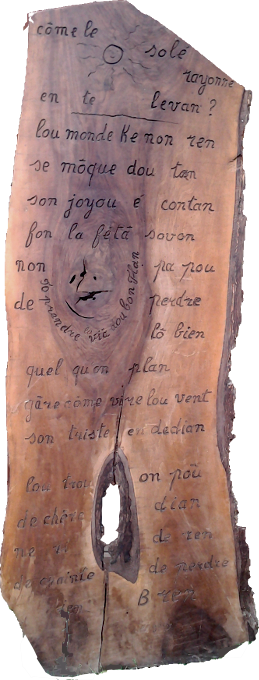 côme le solé
rayonne
en te levan?
lou monde ke non ren
se môque dou tæn
son joyou é contan
fon la fétâ savon
non pa pou
de perdre
lô bien
tô prendre la viâ dou bon flan
quel qu'on plan
gâre côme vire lou vent
son triste en dedian
lou trou on poû
de chôse dian
ne de ren
de crainte de perdre
B